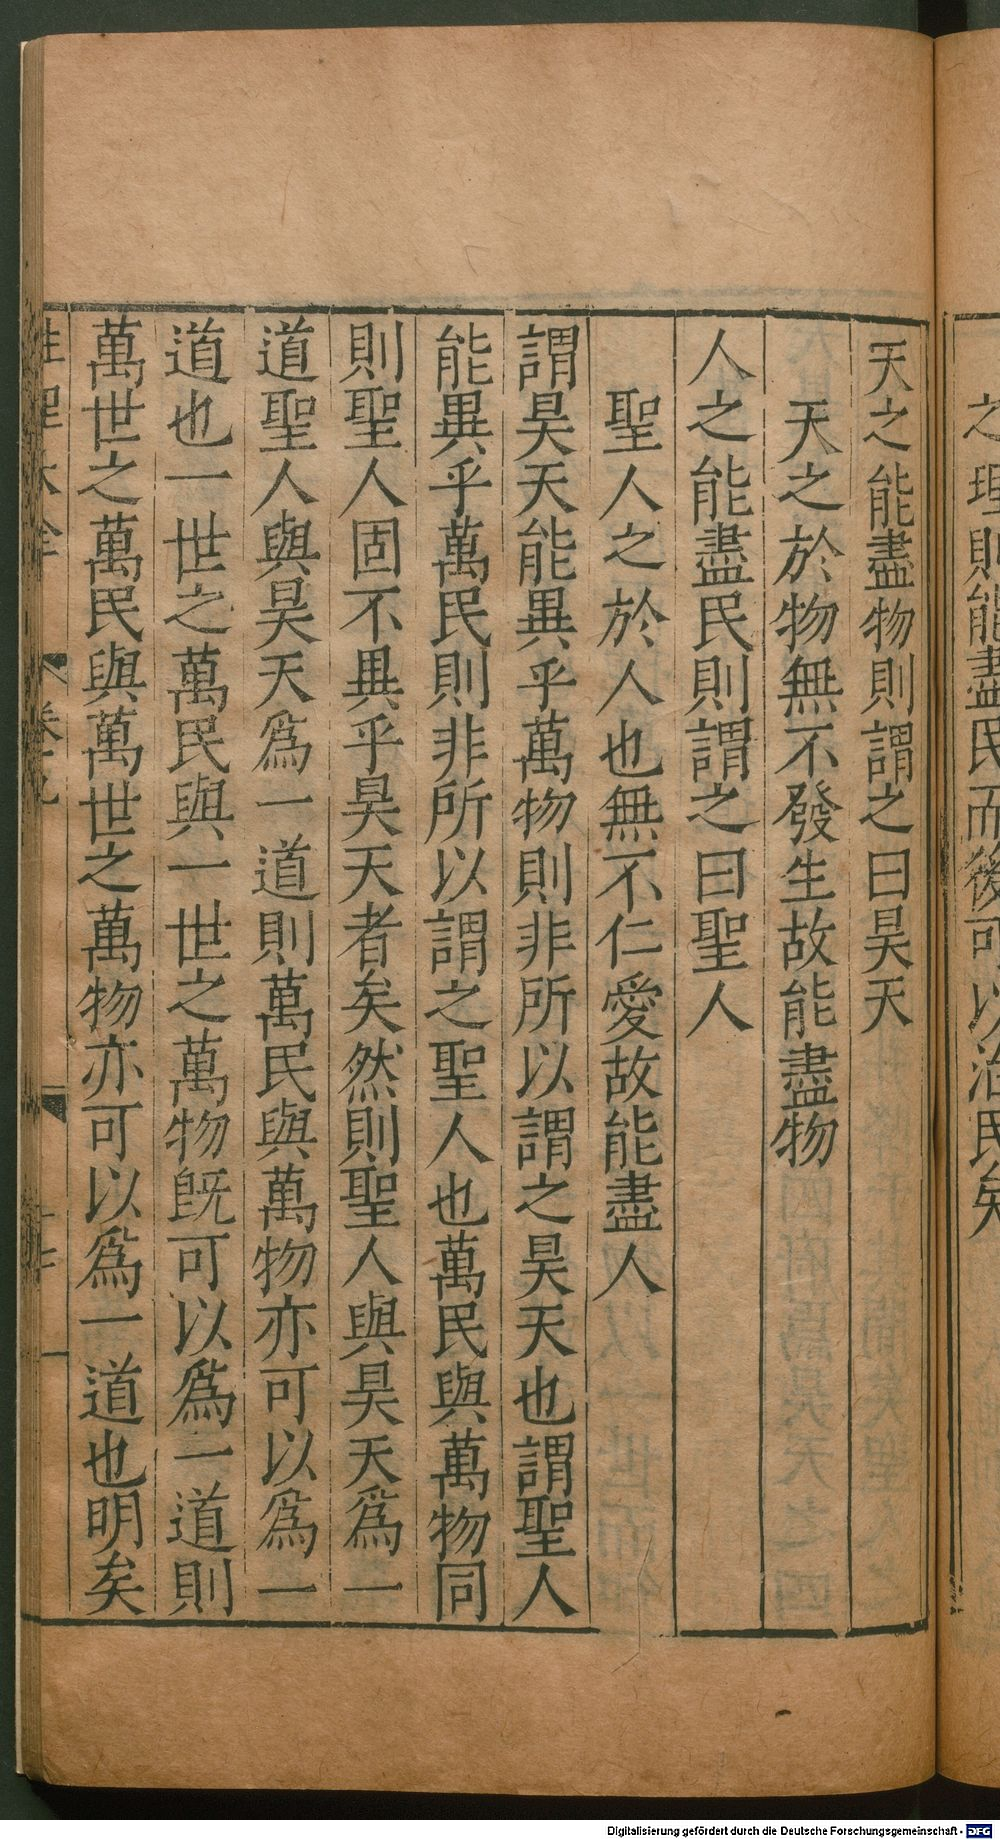 之理則能盡民而後可以治民矣
天之能盡物則謂之曰昊天
天之於物無不發生故能盡物
人之能盡民則謂之曰聖人
聖人之於人也無不仁愛故能盡人
謂昊天能異乎萬物則非所以謂之昊天也謂聖人
能異乎萬民則非所以謂之聖人也萬民與萬物同
則聖人固不異乎昊天者矣然則聖人與昊天爲一
道聖人與昊天爲一道則萬民與萬物亦可以爲一
道也一世之萬民與一世之萬物旣可以爲一道則
萬世之萬民與萬世之萬物亦可以爲一道也明矣
性理大全 卷之九
Digitalisierung gefördert durch die Deutsche Forschungsgemeinschaft - DFG